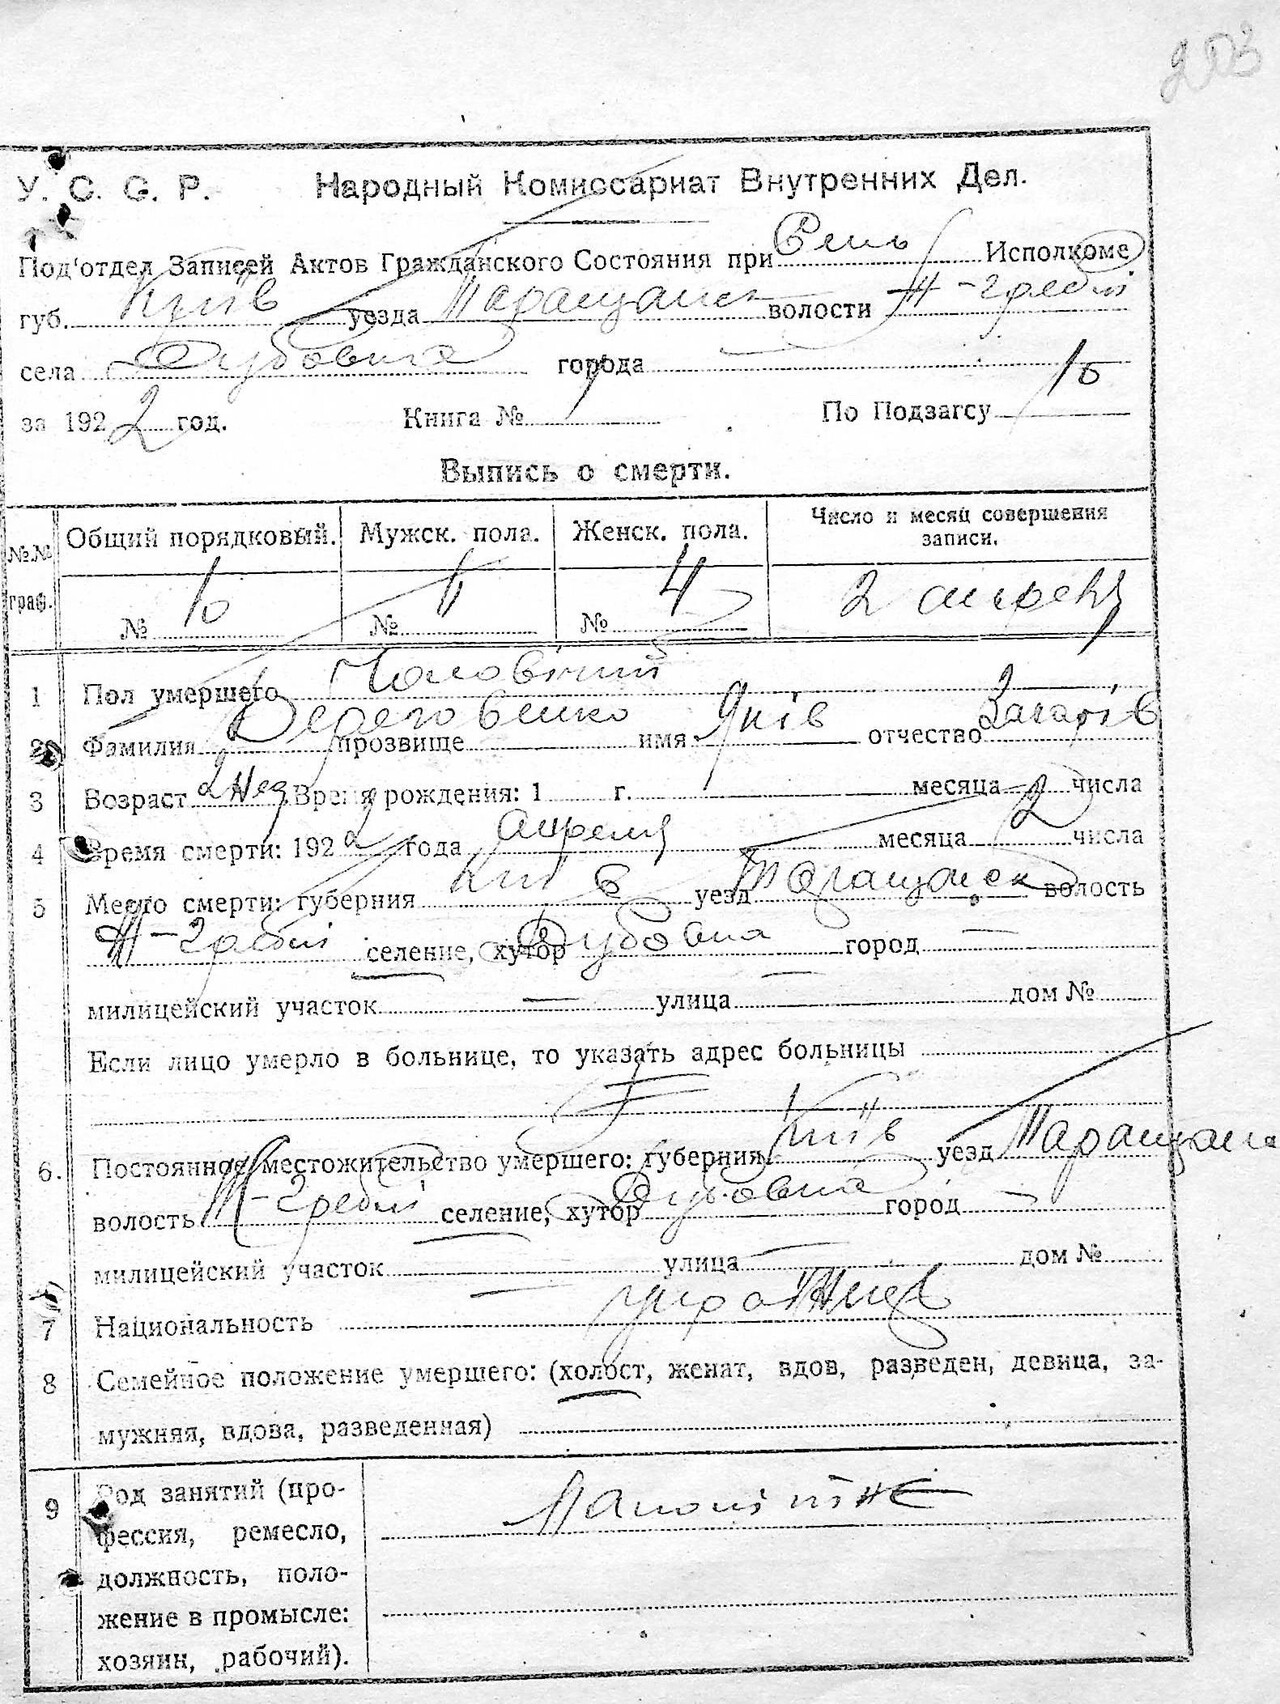 203
У. С. С. Р. Народный Комиссариат Внутренних Дел.
Под'отдел Записей Актов Гражданского Состояния при Сель Исполкоме
губ. Київ уезда Таращанск волости Ж-Греблі
села Дубовка города —
за 1922 год. Книга № 1 По Подзагсу 10
Выпись о смерти.
№№ граф. Общий порядковый. Мужск. пола. Женск. пола. Число и месяц совершения записи.
№ 10 № № 4 2 апреля
1 Пол умершего Чоловічий
2 Фамилия прозвище имя Яків отчество Захарів
3 Возраст 2 Нед Время рождения: 1 г. месяца числа
4 Время смерти: 1922 года апреля месяца 2 числа
5 Место смерти: губерния Київ уезд Таращанск волость
Ж-Греблі селение, хутор Дубовка город —
милицейский участок — улица — дом №
Если лицо умерло в больнице, то указать адрес больницы
6. Постоянное местожительство умершего: губерния Київ уезд Таращанс
волость Ж-Греблі селение, хутор Дубовка город —
милицейский участок — улица — дом №
7 Национальность
8 Семейное положение умершего: (холост, женат, вдов, разведен, девица, за-
мужняя, вдова, разведенная)
9 Род занятий (про-
фессия, ремесло,
должность, поло-
жение в промысле:
хозяин, рабочий).